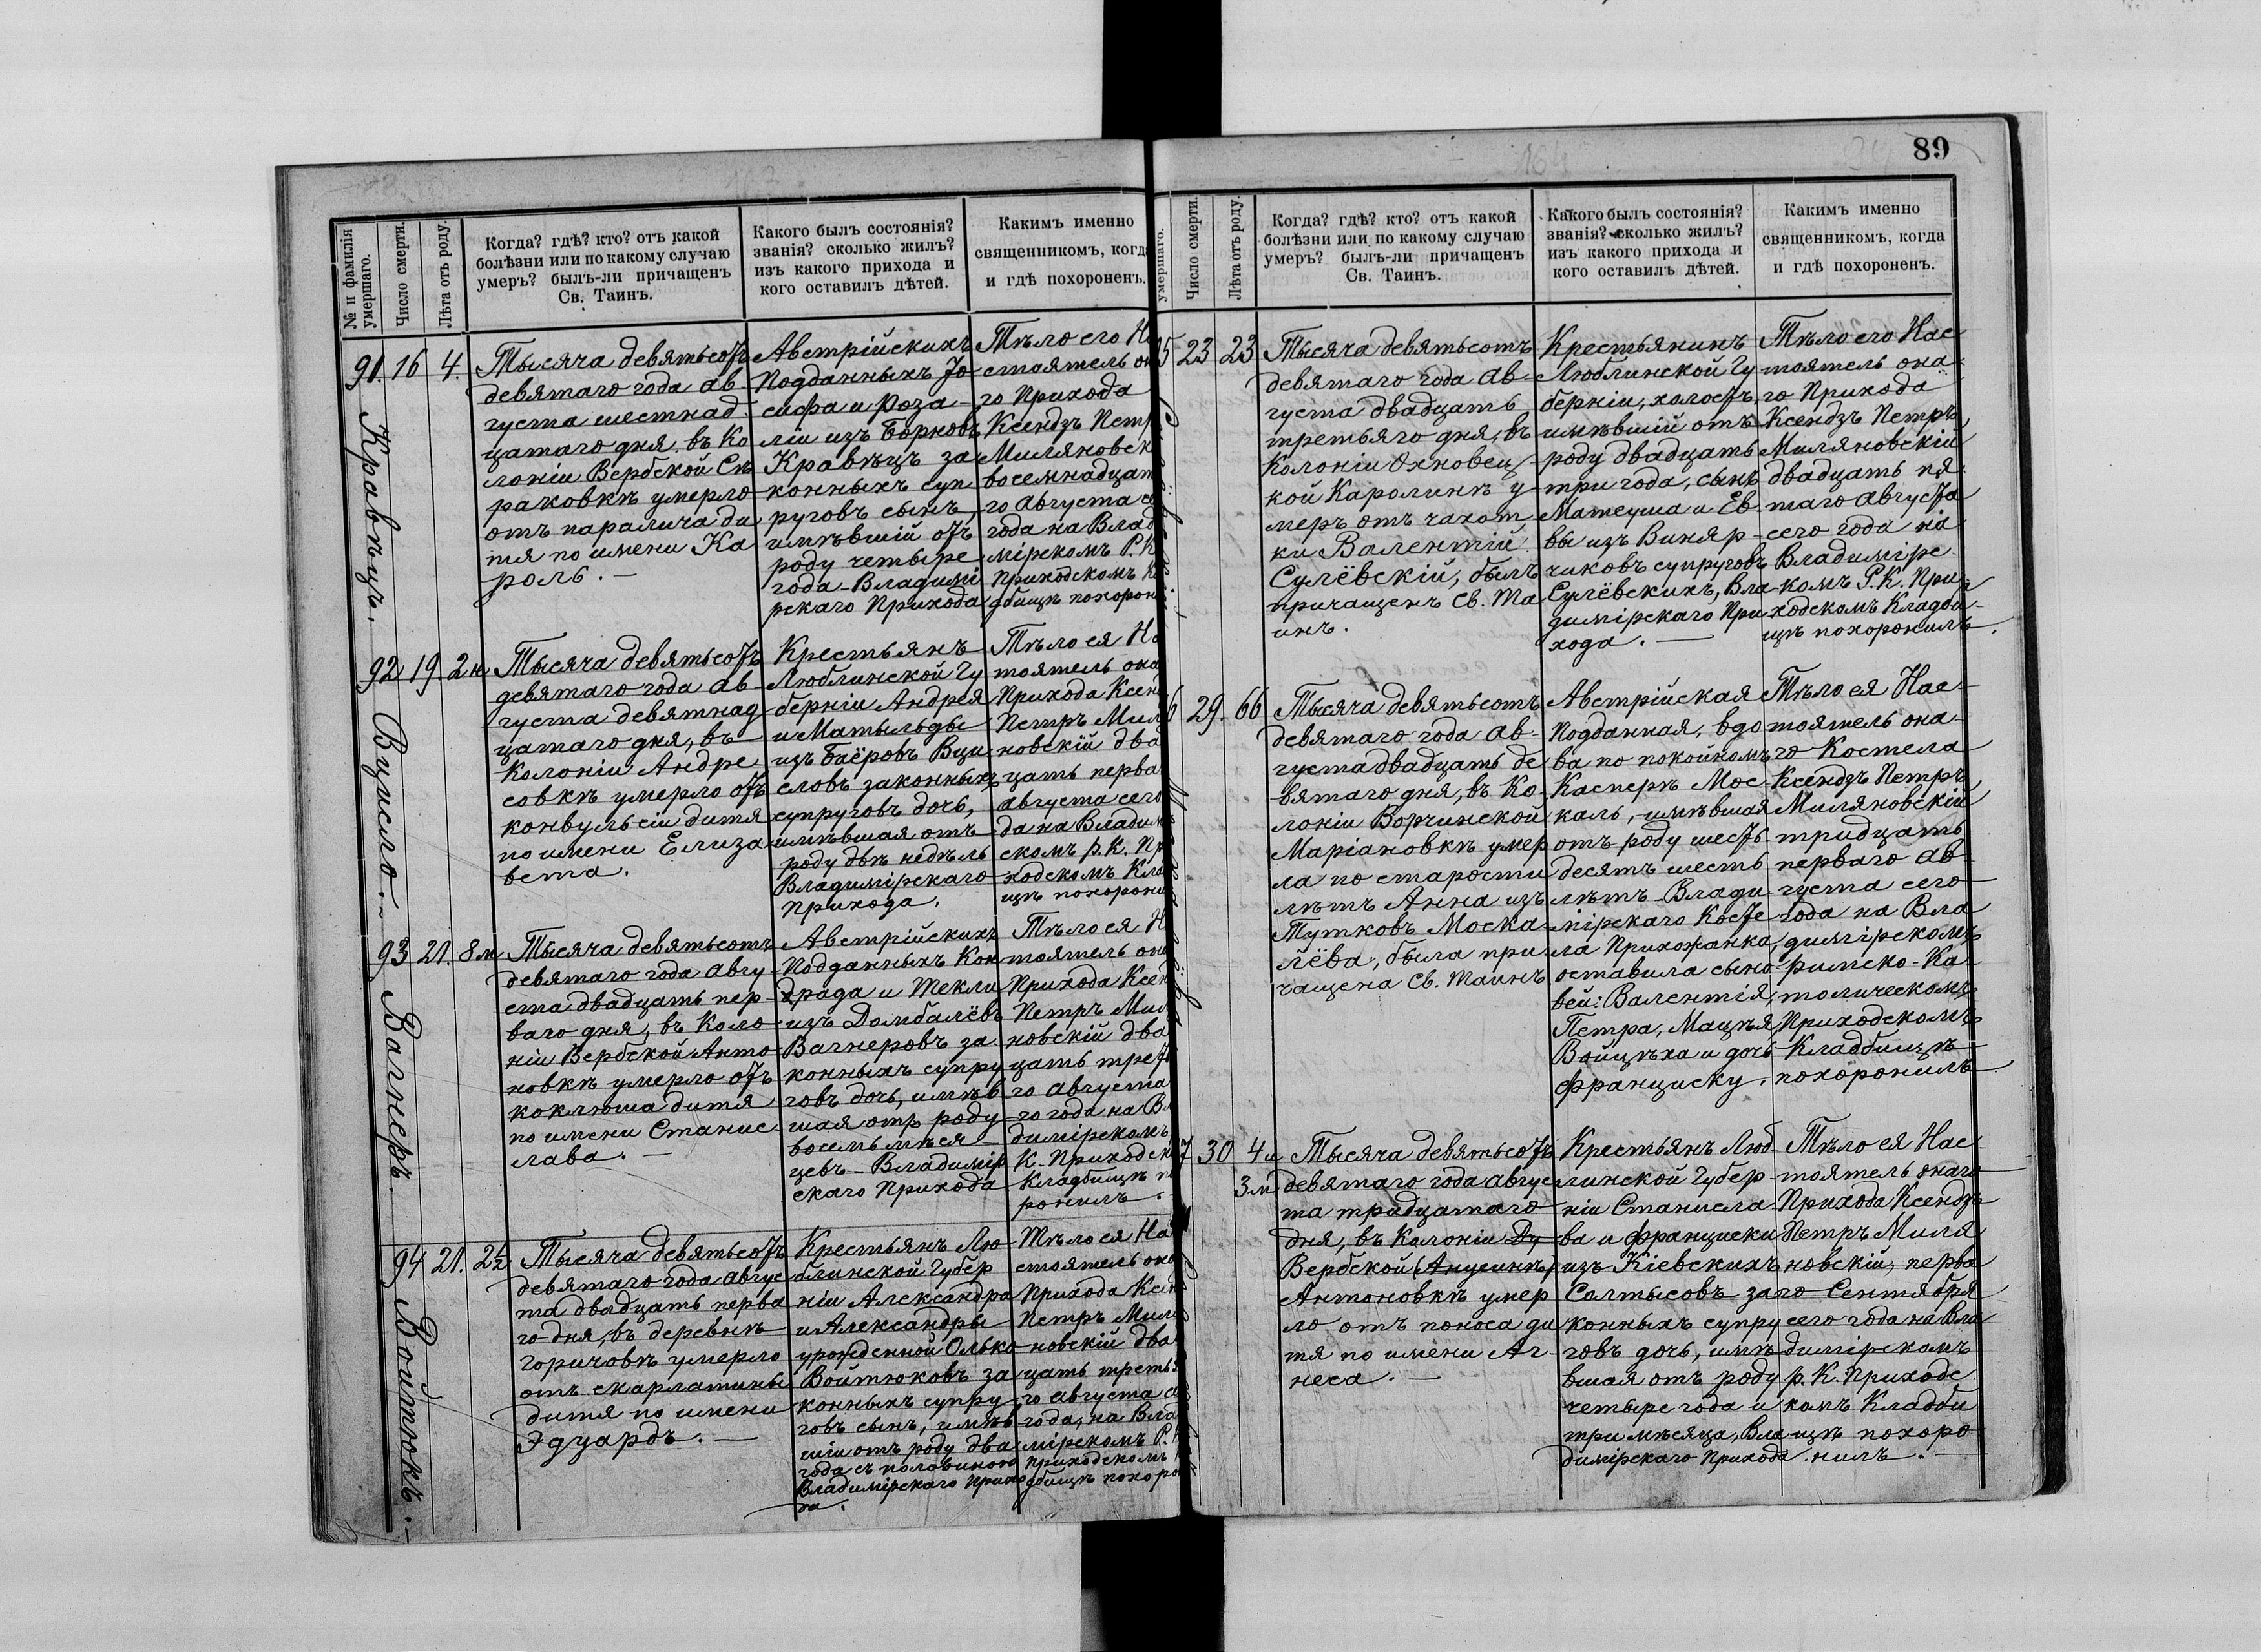 89
№ и фамилія умершаго.
Число смерти.
Лѣта отъ роду.
Когда? гдѣ? кто? отъ какой
болѣзни или по какому случаю
умеръ? былъ-ли причащенъ
Св. Таинъ.
Какого былъ состоянія?
званія? сколько жилъ?
изъ какого прихода и
кого оставилъ дѣтей.
Каким именно
священникомъ, когда
и гдѣ похороненъ.
91. 16 4.
Кравѣцъ.
Тысяча девятьсотъ
девятаго года ав-
густа шестнад-
цатаго дня, въ Ко
лоніи Вербской Ск
раковкѣ умерло
отъ паралича ди
тя по имени Ка
роль. —
Австрійскихъ
Подданныхъ Іо
сифа и Роза-
ліи изъ Борковъ
Кравѣцъ за
конныхъ суп
руговъ сынъ,
имѣвшій отъ
роду четыре
года - Владимі
рскаго Прихода
Тѣло его На
стоятель он
го Прихода
Ксендзъ Петр
Миляновск
восемнадцат
го августа се
года на Влад
мірскомъ Р. К
приходскомъ К
дбищѣ похорон
92 19. 2 н
Вцисло. -
Тысяча девятьсотъ
девятаго года ав-
густа девятнад
цатаго дня, въ
Колоніи Андре
совкѣ умерло отъ
конвульсіи дитя
по имени Елиза
вета.
Крестьянъ
Люблинской Гу
берніи Андрея
и Матыльды
изъ Баёровъ Вци
словъ законныхъ
супруговъ дочь,
имѣвшая отъ
роду двѣ недѣль
Владимірскаго
Прихода.
Тѣло ея На
тоятель она
Прихода Ксен
Петръ Мил
новскій два
цать перва
августа сего
да на Владим
скомъ р. К. Пр
ходскомъ Кла
ищѣ похорони
93 21. 8 м
Вагнеръ.
Тысяча девятьсотъ
девятаго года авгу-
ста двадцать пер-
ваго дня, въ Коло-
ніи Вербской Анто
новкѣ умерло отъ
коклюша дитя
по имени Станис
лава. —
Австрійскихъ
Подданныхъ Кон
драда и Текли
изъ Домбалёвъ
Вагнеровъ за
конныхъ супру
говъ дочь, имѣв
шая отъ роду
восемь мѣся
цевъ - Владимір
скаго Прихода
Тѣло ея Н
тоятель он
Прихода Ксен
Петръ Мил
новскій два
цать треть
го августа
го года на В
димірскомъ
К. Приходск
Кладбищѣ п
ронилъ.
94 21. 2½
Войтюкъ. -
Тысяча девятьсотъ
девятаго года авгус
та двадцать перва
го дня, въ деревнѣ
Горичовѣ умерло
отъ скарлатины
дитя по имени
Эдуардъ. —
Крестьянъ Лю
блинской Губер
ніи Александра
и Александры
урожденной Олько
Войтюковъ за
конныхъ супру
говъ сынъ, имѣв
шій отъ роду два
года съ половиною
Владимірскаго Прихо
да.
Тѣло ея На
стоятель она
Прихода Ксен
Петръ Мил
новскій два
цать треть
го августа с
года, на Влад
мірскомъ Р. К
приходскомъ
дбищѣ похоро
умершаго.
Число смерти.
Лѣта отъ роду.
Когда? гдѣ? кто? отъ какой
болѣзни или по какому случаю
умеръ? былъ-ли причащенъ
Св. Таинъ.
Какого былъ состоянія?
званія? сколько жилъ?
изъ какого прихода и
кого оставилъ дѣтей.
Какимъ именно
священникомъ, когда
и гдѣ похороненъ.
5 23 23
Тысяча девятьсотъ
девятаго года ав-
густа двадцать
третьяго дня, въ
Колоніи Охновец-
кой Каролинѣ у-
меръ отъ чахот
ки Валентій
Сулёвскій, былъ
причащенъ Св. Та
инъ.
Крестьянинъ
Люблинской Гу
берніи, холостъ,
имѣвшій отъ
роду двадцать
три года, сынъ
Матеуша и Ев
вы изъ Виняр-
чиковъ супруговъ
Сулёвскихъ, Вла-
димірскаго При
хода. —
Тѣло его Нас
тоятель она-
го Прихода
Ксендзъ Петръ
Миляновскій
двадцать пя-
таго августа
сего года на
Владимірс-
комъ Р. К. При-
ходскомъ Кладби-
щѣ похоронилъ.
6 29. 66
Тысяча девятьсотъ
девятаго года ав-
густа двадцать де
вятаго дня, въ Ко-
лоніи Ворчинской
Маріановкѣ умер
ла по старости
лѣтъ Анна изъ
Тутковъ Моска-
лёва, была при
чащена Св. Таинъ
Австрійская
Подданная, вдо
ва по покойномъ
Касперѣ Мос
каль, имѣвшая
отъ роду шесть
десятъ шесть
лѣтъ - Влади
мірскаго Косте
ла Прихожанка,
оставила сыно-
вей: Валентія,
Петра, Мацѣя,
Войцѣха и дочь
Франциску.
Тѣло ея Нас-
тоятель она-
го Костела
Ксендзъ Петръ
Миляновскій
тридцать
перваго ав-
густа сего
года на Вла
димірскомъ
римско-Ка
толическомъ
Приходскомъ
Кладбищѣ
похоронилъ
7 30 4 л 3 м
Тысяча девятьсотъ
девятаго года авгус
та тридцатаго
дня, въ Колоніи Ду
Вербской (Анусинѣ)
Антоновкѣ умер
ло отъ поноса ди
тя по имени Аг-
неса. —
Крестьянъ Люб
линской Губер
ніи Станисла
ва и Франциски
изъ Кіевскихъ
Солтысовъ за
конныхъ супру
говъ дочь, имѣ
вшая отъ роду
четыре года и
три мѣсяца, Вла
димірскаго Прихода
Тѣло ея Нас-
тоятель онаго
Прихода Ксендзъ
Петръ Миля
новскій, перва
го Сентября
сего года на Вла
димірскомъ
р. К. Приходс
комъ Кладби
щѣ похоро
нилъ. —